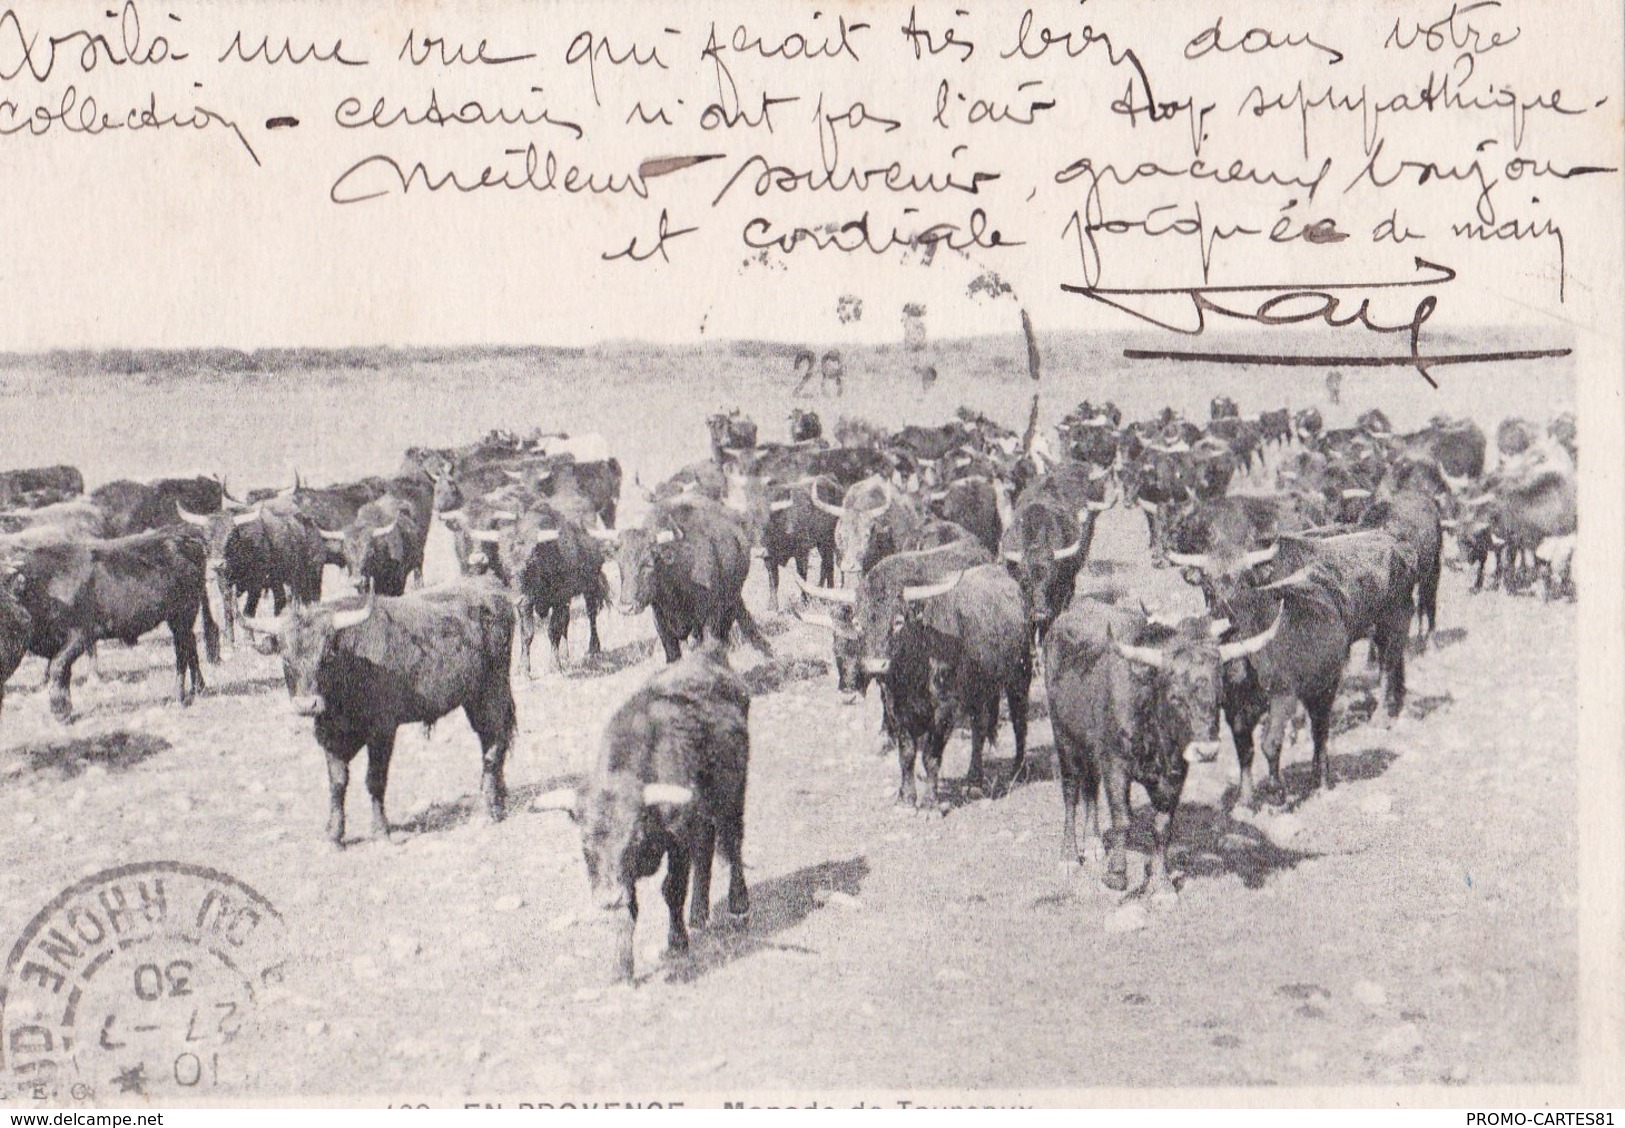 Voilà une vue qui ferait très bien dans votre
collection - certains n'ont pas l'air trop sympathique.
Meilleur souvenir, gracieux bonjour
et cordiale poignée de main
28
DU RHONE
30
27 - 7
10 *
E. C.
EN PROVENCE - Manade de Taureaux
www.delcampe.net
PROMO-CARTES81